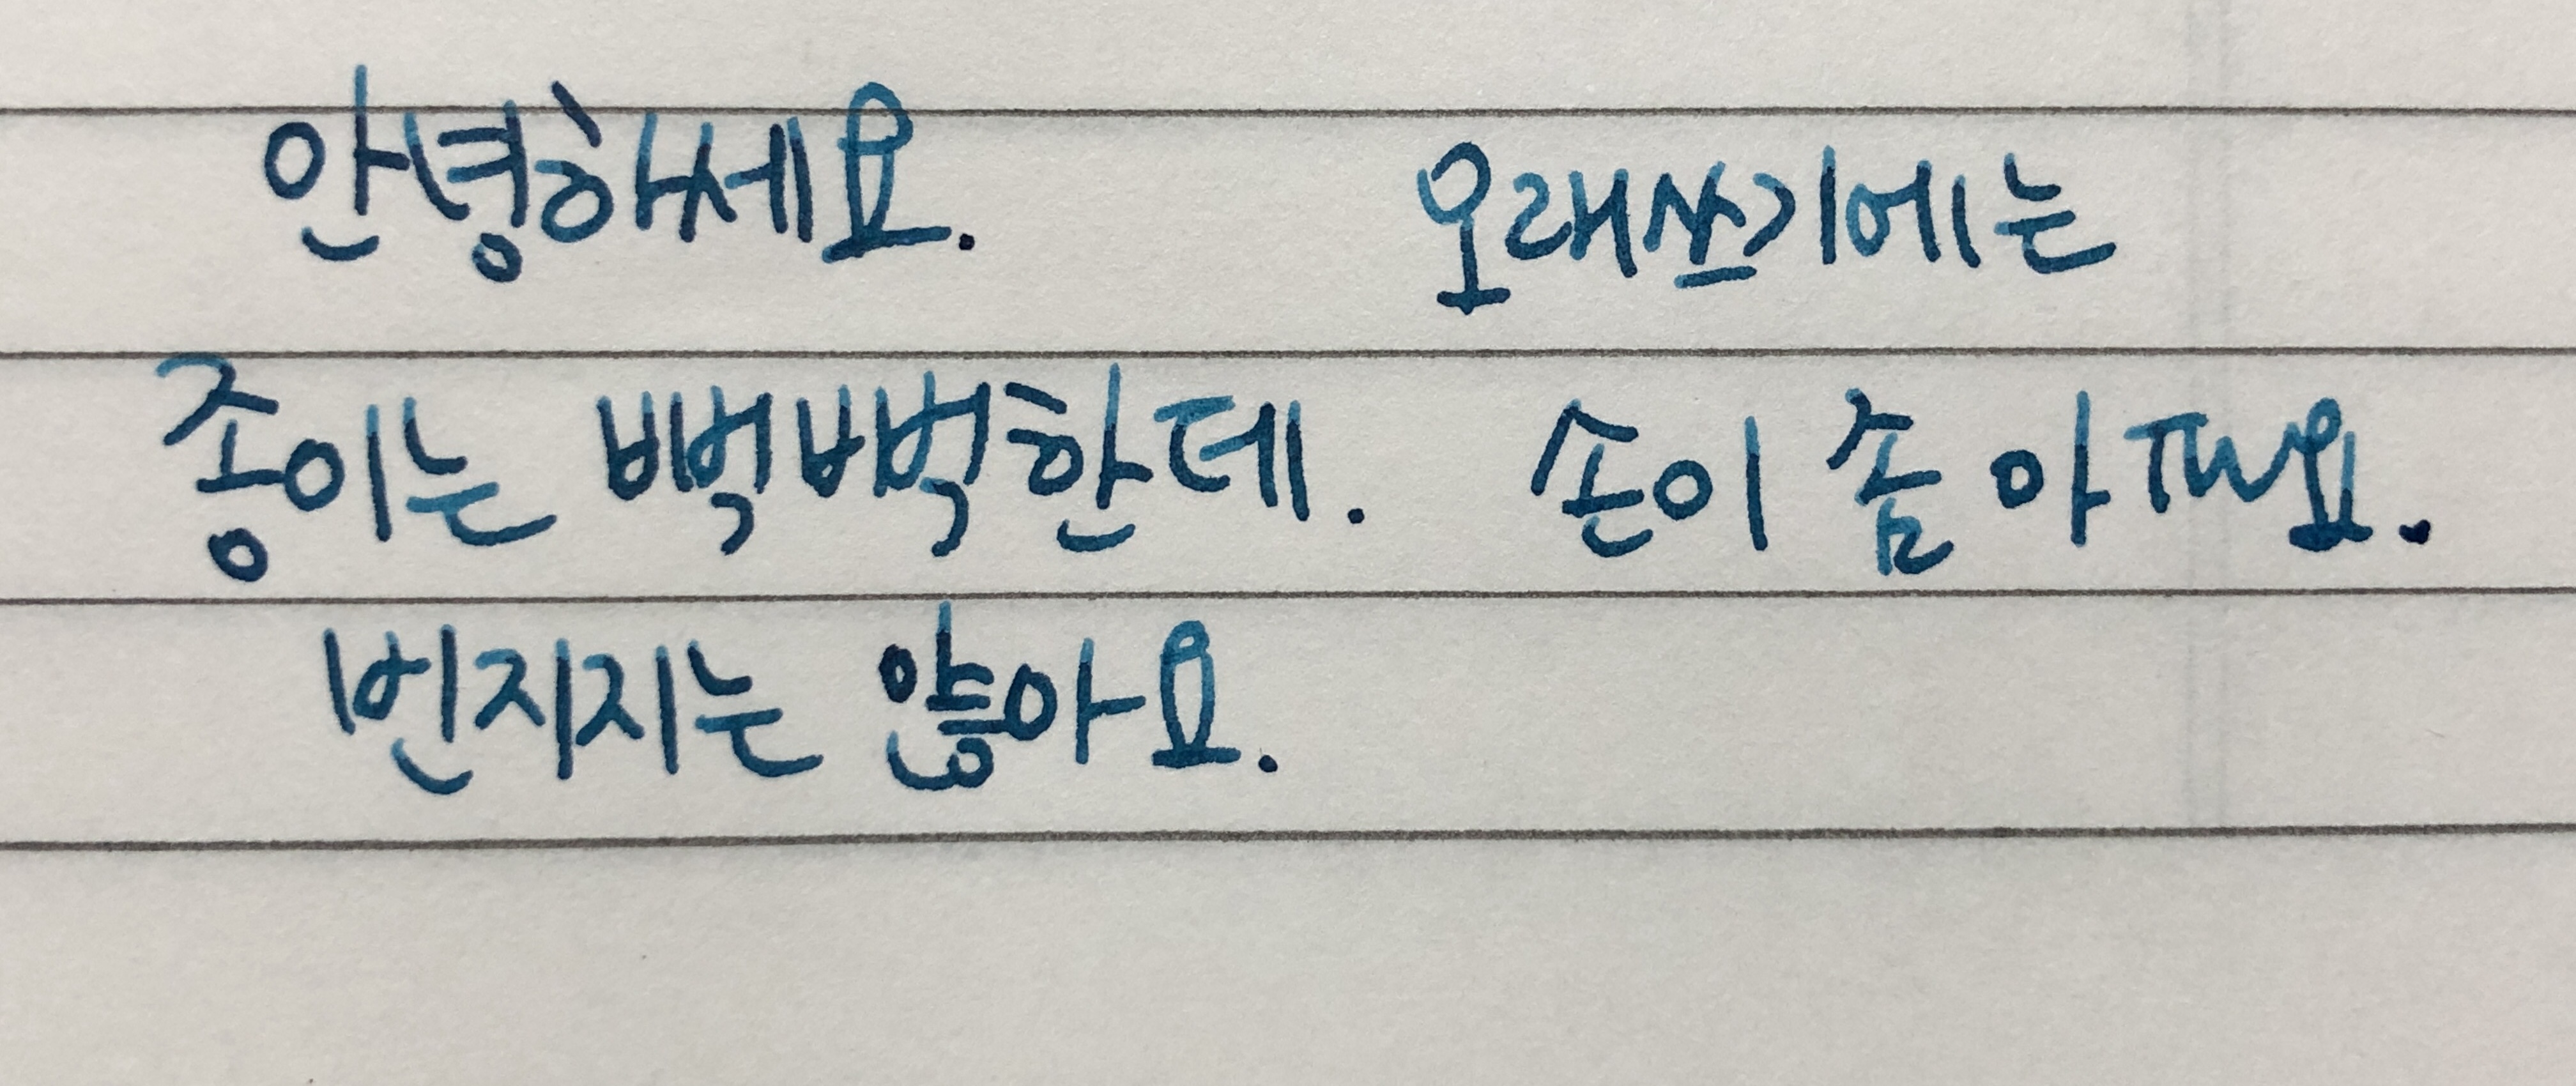 안녕하세요.
종이는 뻑뻑한데.
번지지는 않아요.
오래쓰기에는
손이 좀 아파요.